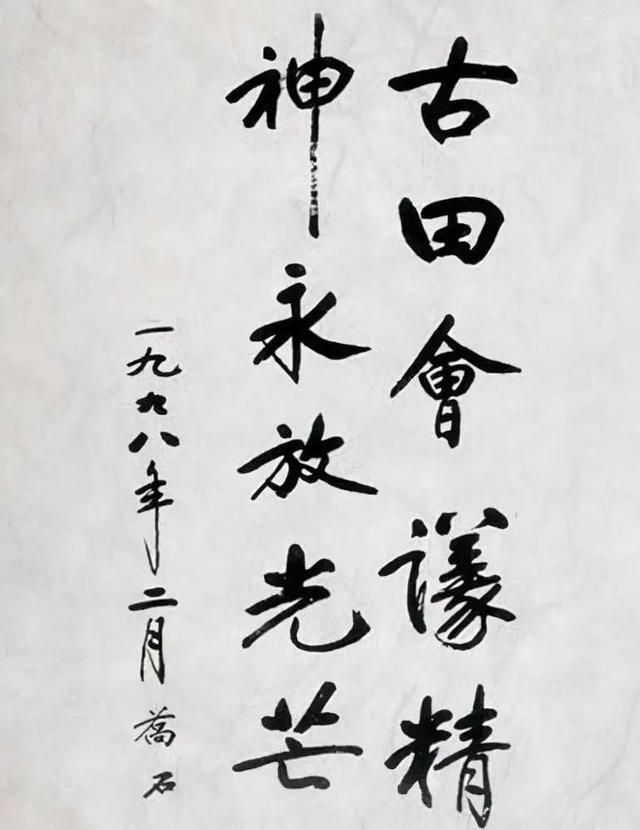 古田會議精
神永放光芒
一九九八年二月 喬石